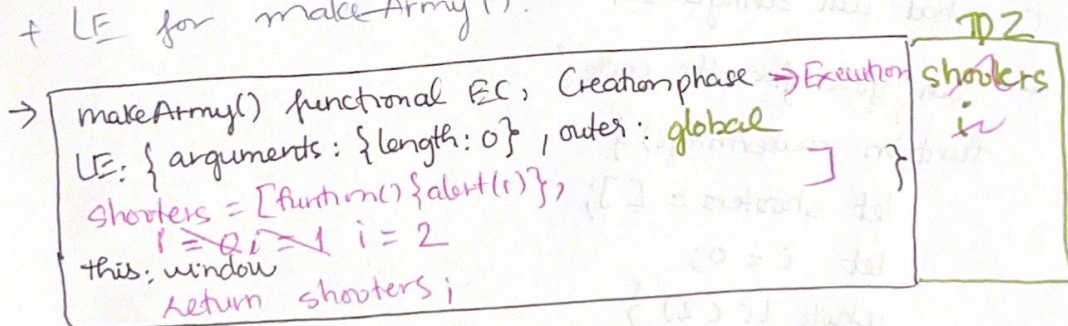 + LE for makeArmy().
TDZ
→ makeArmy() functional EC, Creation phase → Execution
shooters
LE: { arguments: {length: 0}, outer: global
i
shooters = [function() {alert(i)}, ] }
i = 0 i = 1 i = 2
this: window
return shooters;